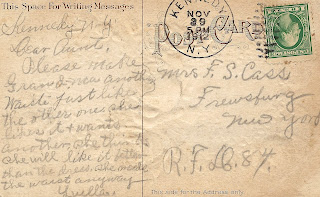 This Space For Writing Messages
Kennedy N.Y
Dear Aunt,
Please make
Grandma another
Waist just like
the other one she
likes it & wants
another, she thinks
she will like it better
than the dress. She needs
the waist anyway
Luella
POST CARD
KENNEDY
NOV
29
5 PM
1912
N.Y.
Mrs. F. S. Cass
Frewsburg
New York
R.F.D. 84.
This side for the address only